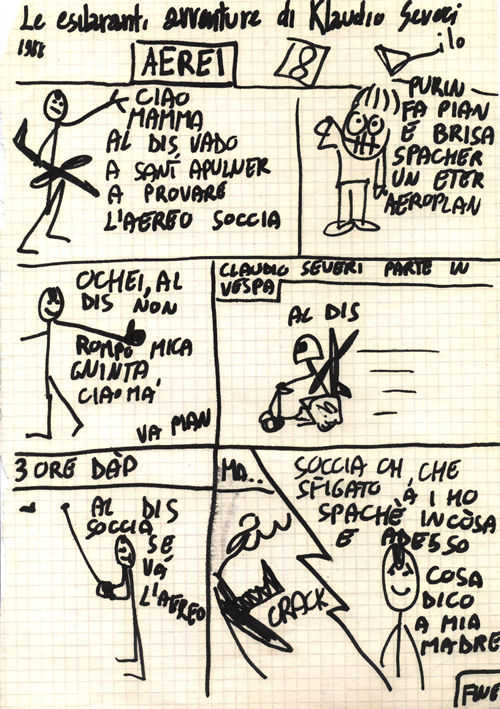 Le esilaranti avventure di Klaudio Severi
1988
AEREI
8
ilo
CIAO
MAMMA
AL DIS VADO
A SANT APULNER
A PROVARE
L'AEREO SOCCIA
PURIN
FA PIAN
E BRISA
SPACHER
UN ETER
AEROPLAN
OCHEI, AL
DIS NON
ROMPO MICA
GNINTA
CIAO MA'
VA PIAN
CLAUDIO SEVERI PARTE IN
VESPA
AL DIS
3 ORE DÀP
AL DIS
SOCCIA
SE
VÀ
L'AEREO
MA..
CRACK
SOCCIA OH, CHE
SFIGATO, À I HO
SPACHÈ INCÒSA
E ADESSO
COSA
DICO
A MIA
MADRE
FINE